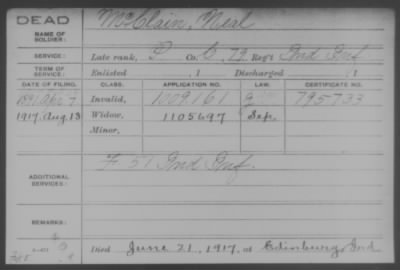 DEAD
NAME OF SOLDIER: McClain, Neal
SERVICE: Late rank, P Co. C, 79 Reg't Ind Inf
TERM OF SERVICE: Enlisted , 1 Discharged , 1
DATE OF FILING. CLASS. APPLICATION NO. LAW. CERTIFICATE NO.
1891 Apr 7 Invalid, 1009.161 G 795733
1917. Aug. 13 Widow, 1105697 Sep.
Minor,
ADDITIONAL SERVICES: F 51 Ind Inf.
REMARKS:
Died June 21, 1917, at Edinburg, Ind